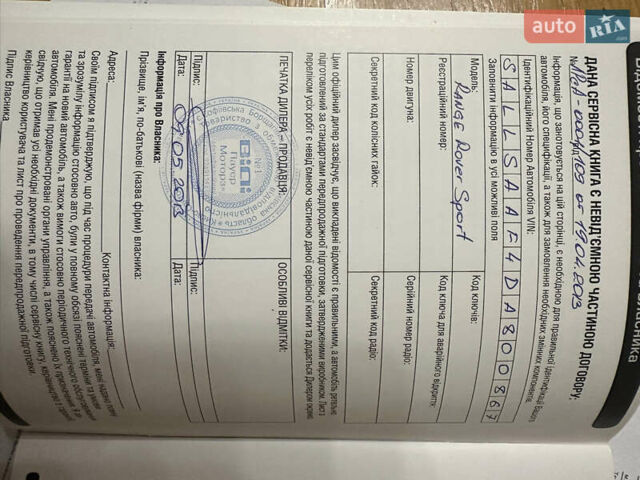 auto RIA.com
ДАНА СЕРВІСНА КНИГА Є НЕВІД'ЄМНОЮ ЧАСТИНОЮ ДОГОВОРУ:
от 19.04.2013
Інформація, що занотовується на цій сторінці, є необхідною для правильної ідентифікації Вашого
автомобіля, його специфікації, а також для замовлення необхідних змінних компонентів.
Ідентифікаційний Номер Автомобіля VIN:
SALLSAAF4DA800867
Заповнити інформацію в усі можливі поля
Модель: RANGE ROVER SPORT
Код ключів:
Реєстраційний номер:
Код ключа для аварійного відкриття:
Номер двигуна:
Серійний номер радіо:
Секретний код колісних гайок:
Секретний код радіо:
Цим офіційний дилер засвідчує, що викладені відомості є правильними, а автомобіль ретельно
підготовлений за стандартами передпродажної підготовки, затвердженими виробником. Лист з
переліком усіх робіт є невід'ємною частиною даної сервісної книги та додається Дилером окремо.
ПЕЧАТКА ДИЛЕРА – ПРОДАВЦЯ:
ОСОБЛИВІ ВІДМІТКИ:
Віді
Пауер
Моторз
Підпис:
Підпис:
Дата: 09.05.2013
Дата:
Інформація про Власника:
Прізвище, ім'я, по-батькові (назва фірми) власника:
Адреса:
Контактна інформація:
Своїм підписом я підтверджую, що під час процедури передачі автомобіля, мені надана повна
та зрозуміла інформація стосовно авто, були у повному обсязі пояснені терміни та умови
гарантії на новий автомобіль, а також вимоги стосовно періодичного технічного обслуговування
автомобіля. Мені продемонстровані органи управління, а також пояснено їх призначення. Я
свідчу, що отримав усі необхідні документи, в тому числі сервісну книгу, керівництво
керівництво користувача та лист про проведення передпродажної підготовки.
Підпис Власника